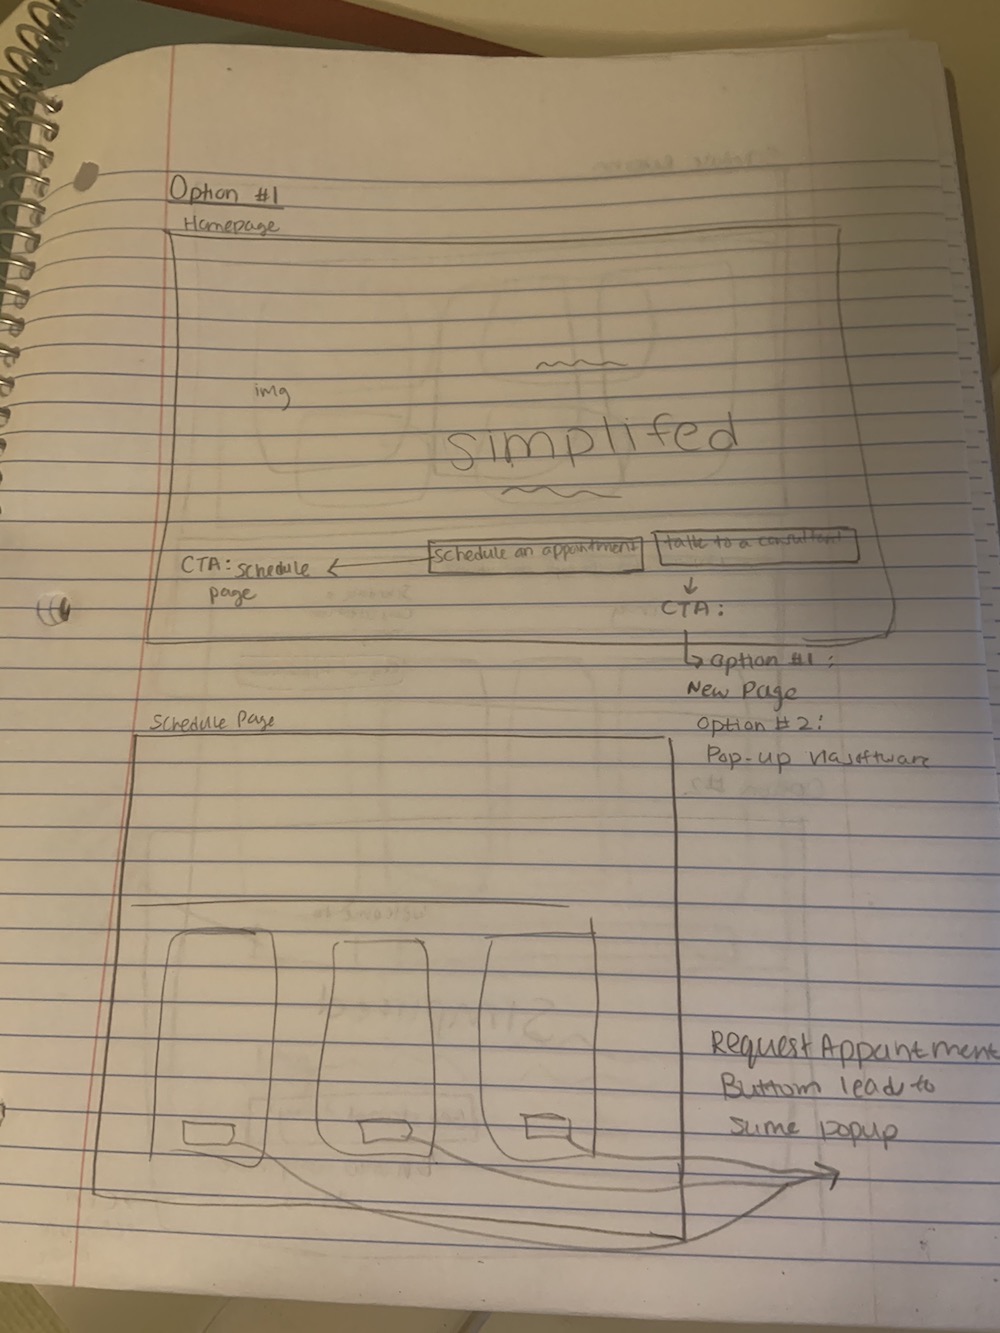 Option #1
Homepage
img
simplifed
schedule an appointment
talk to a consultant
CTA: schedule
page
CTA:
option #1:
New Page
option #2:
Pop-up via software
Schedule Page
Request Appointment
Buttom lead to
same popup